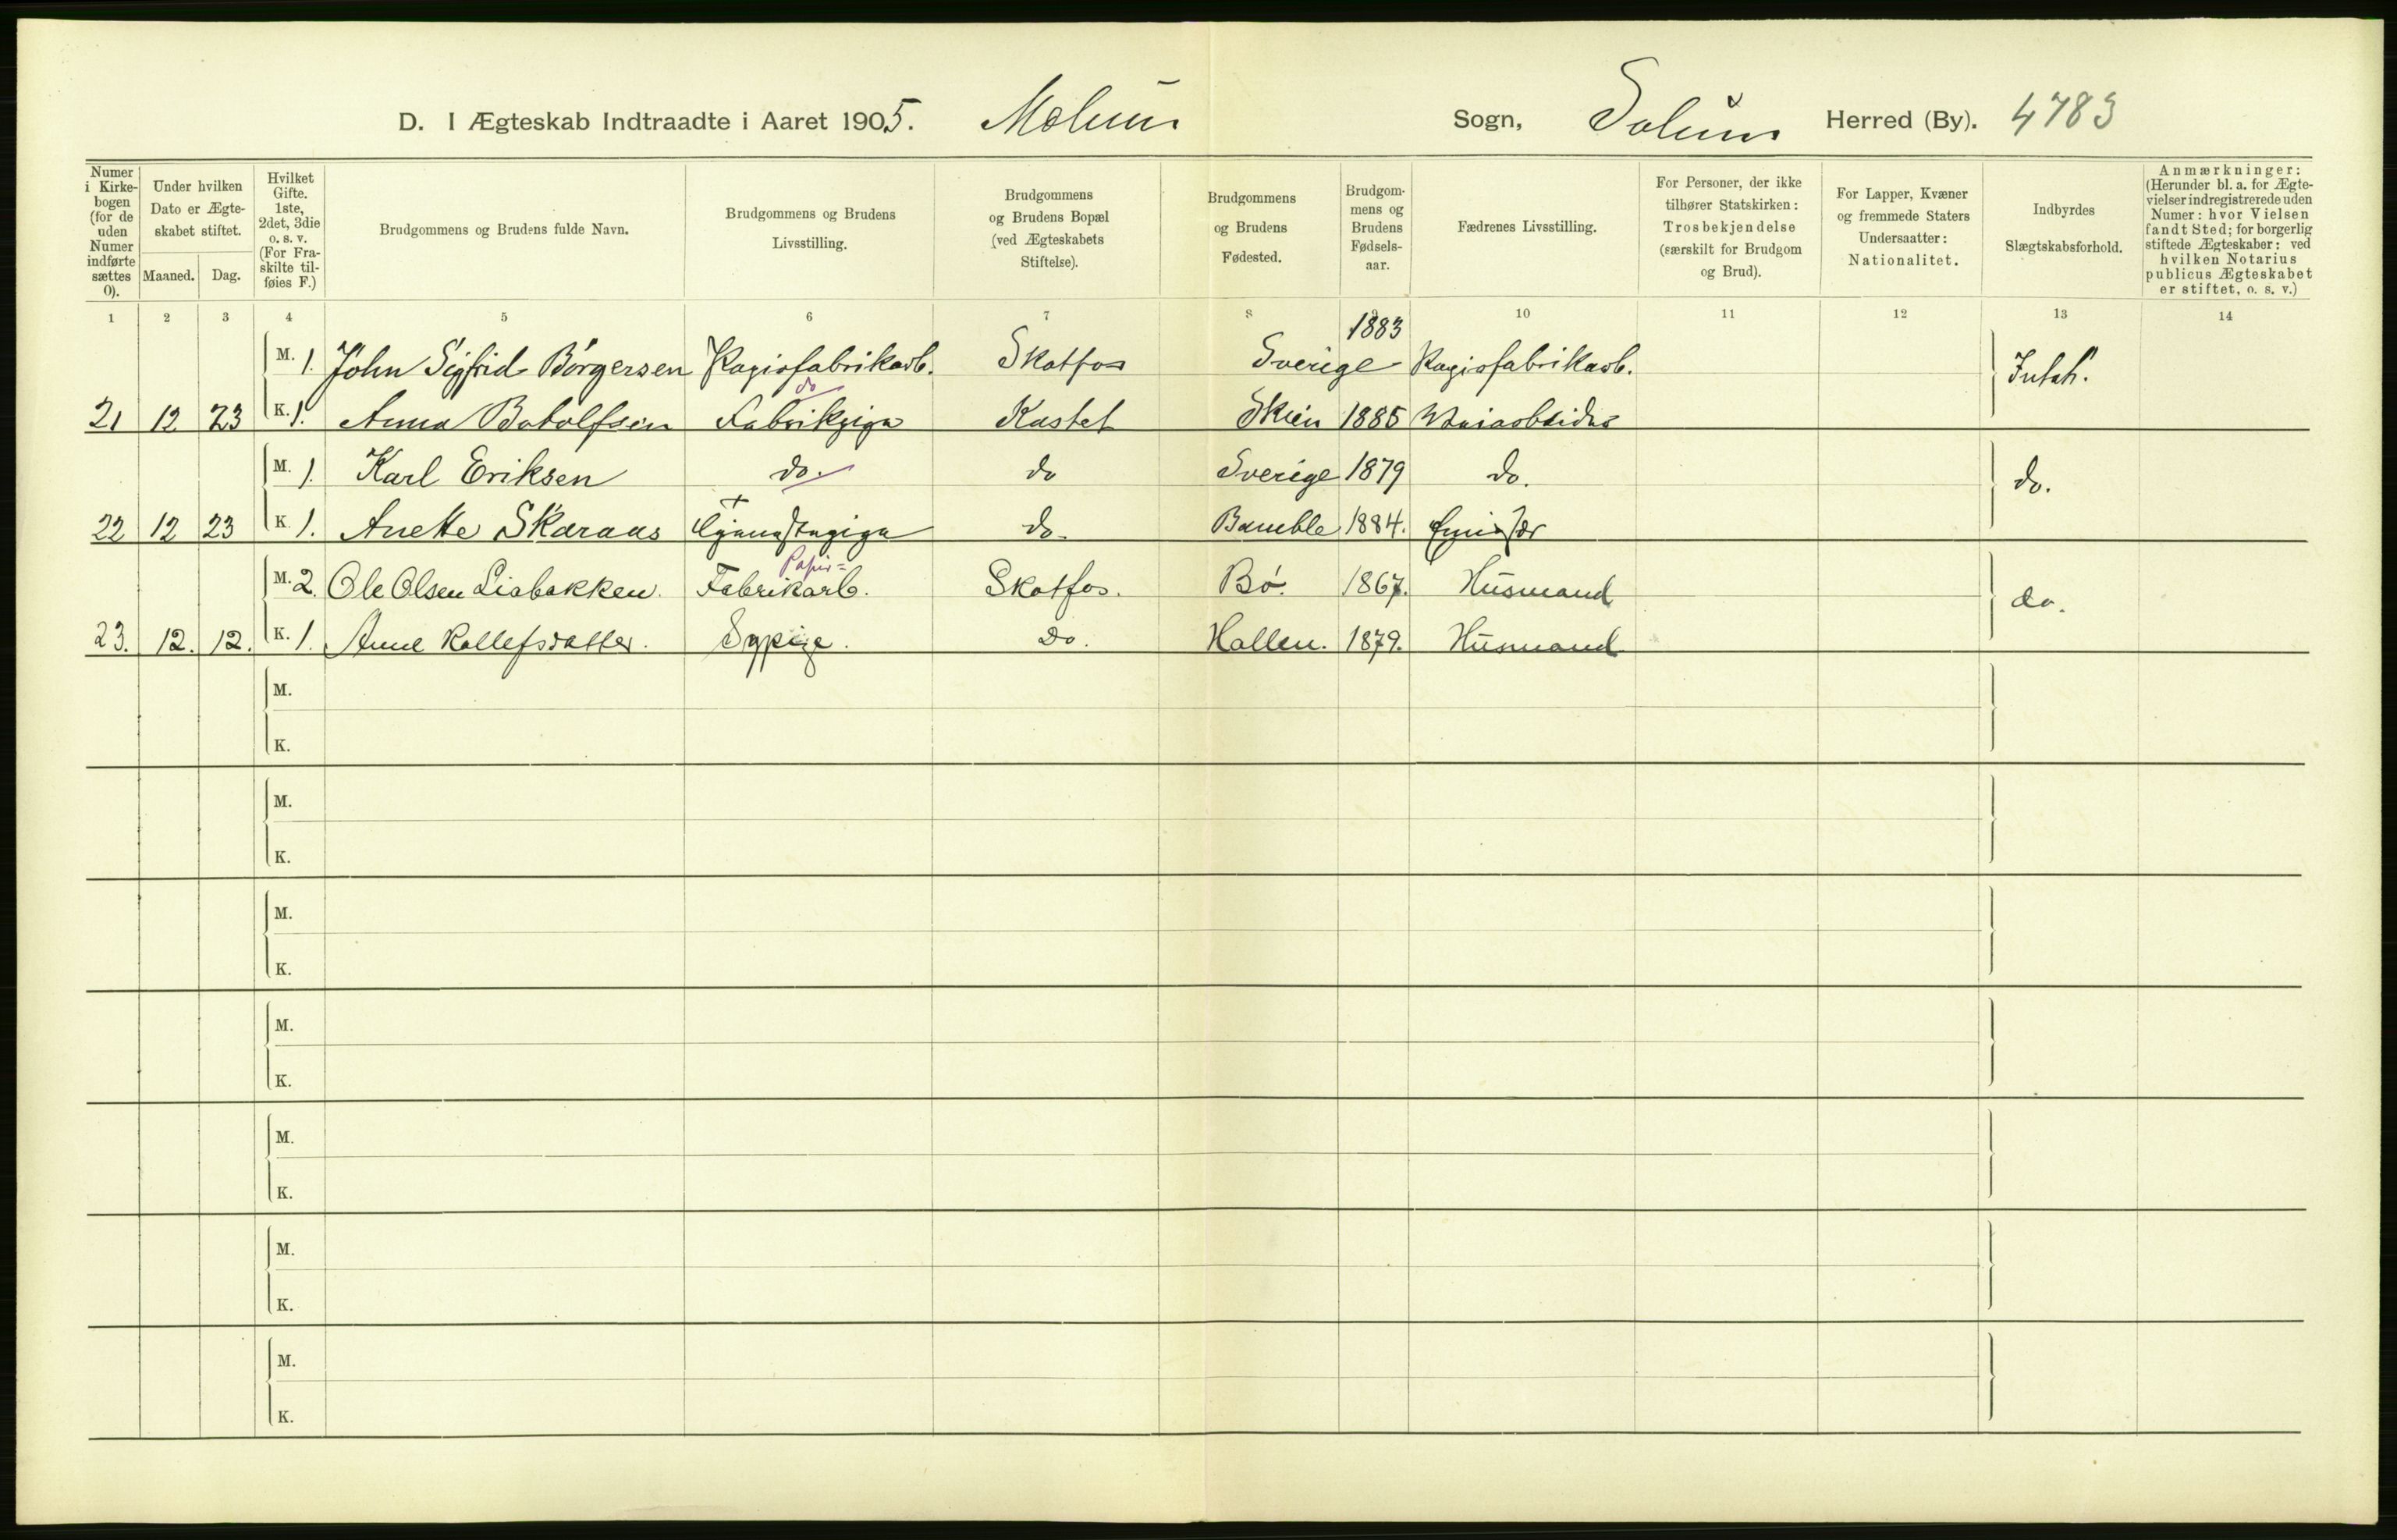 D. I Ægteskab Indtraadte i Aaret 1905. Melum Sogn, Solum Herred (By). 4783
Numer i Kirkebogen (for de uden Numer indførte sættes 0).
Under hvilken Dato er Ægteskabet stiftet.
Maaned. Dag.
Hvilket Gifte. 1ste, 2det, 3die o. s. v. (For Fraskilte tilføies F.)
Brudgommens og Brudens fulde Navn.
Brudgommens og Brudens Livsstilling.
Brudgommens og Brudens Bopæl (ved Ægteskabets Stiftelse).
Brudgommens og Brudens Fødested.
Brudgommens og Brudens Fødselsaar.
Fædrenes Livsstilling.
For Personer, der ikke tilhører Statskirken: Trosbekjendelse (særskilt for Brudgom og Brud).
For Lapper, Kvæner og fremmede Staters Undersaatter: Nationalitet.
Indbyrdes Slægtskabsforhold.
Anmærkninger: (Herunder bl. a. for Ægtevielser indregistrerede uden Numer: hvor Vielsen fandt Sted; for borgerlig stiftede Ægteskaber: ved hvilken Notarius publicus Ægteskabet er stiftet, o. s. v.)
1 2 3 4 5 6 7 8 9 10 11 12 13 14
M. 1. John Sigfrid Børgersen Papirfabrikarb. Skotfos Sverige 1883 Papirfabrikarb. Intet.
do
21 12 23 K. 1. Anna Botolfsen Fabrikpige Kastet Skien 1885
M. 1. Karl Eriksen do. do Sverige 1879 do. do.
22 12 23 K. 1. Anette Skaraas Tjenestepige do. Bamble 1884.
Papir=
M. 2. Ole Olsen Liabakken. Fabrikarb. Skotfos. Bø. 1867. Husmand do.
23. 12. 12. K. 1. Anne Rollefsdatter. Sypige. Do. Hollen. 1879. Husmand
M.
K.
M.
K.
M.
K.
M.
K.
M.
K.
M.
K.
M.
K.